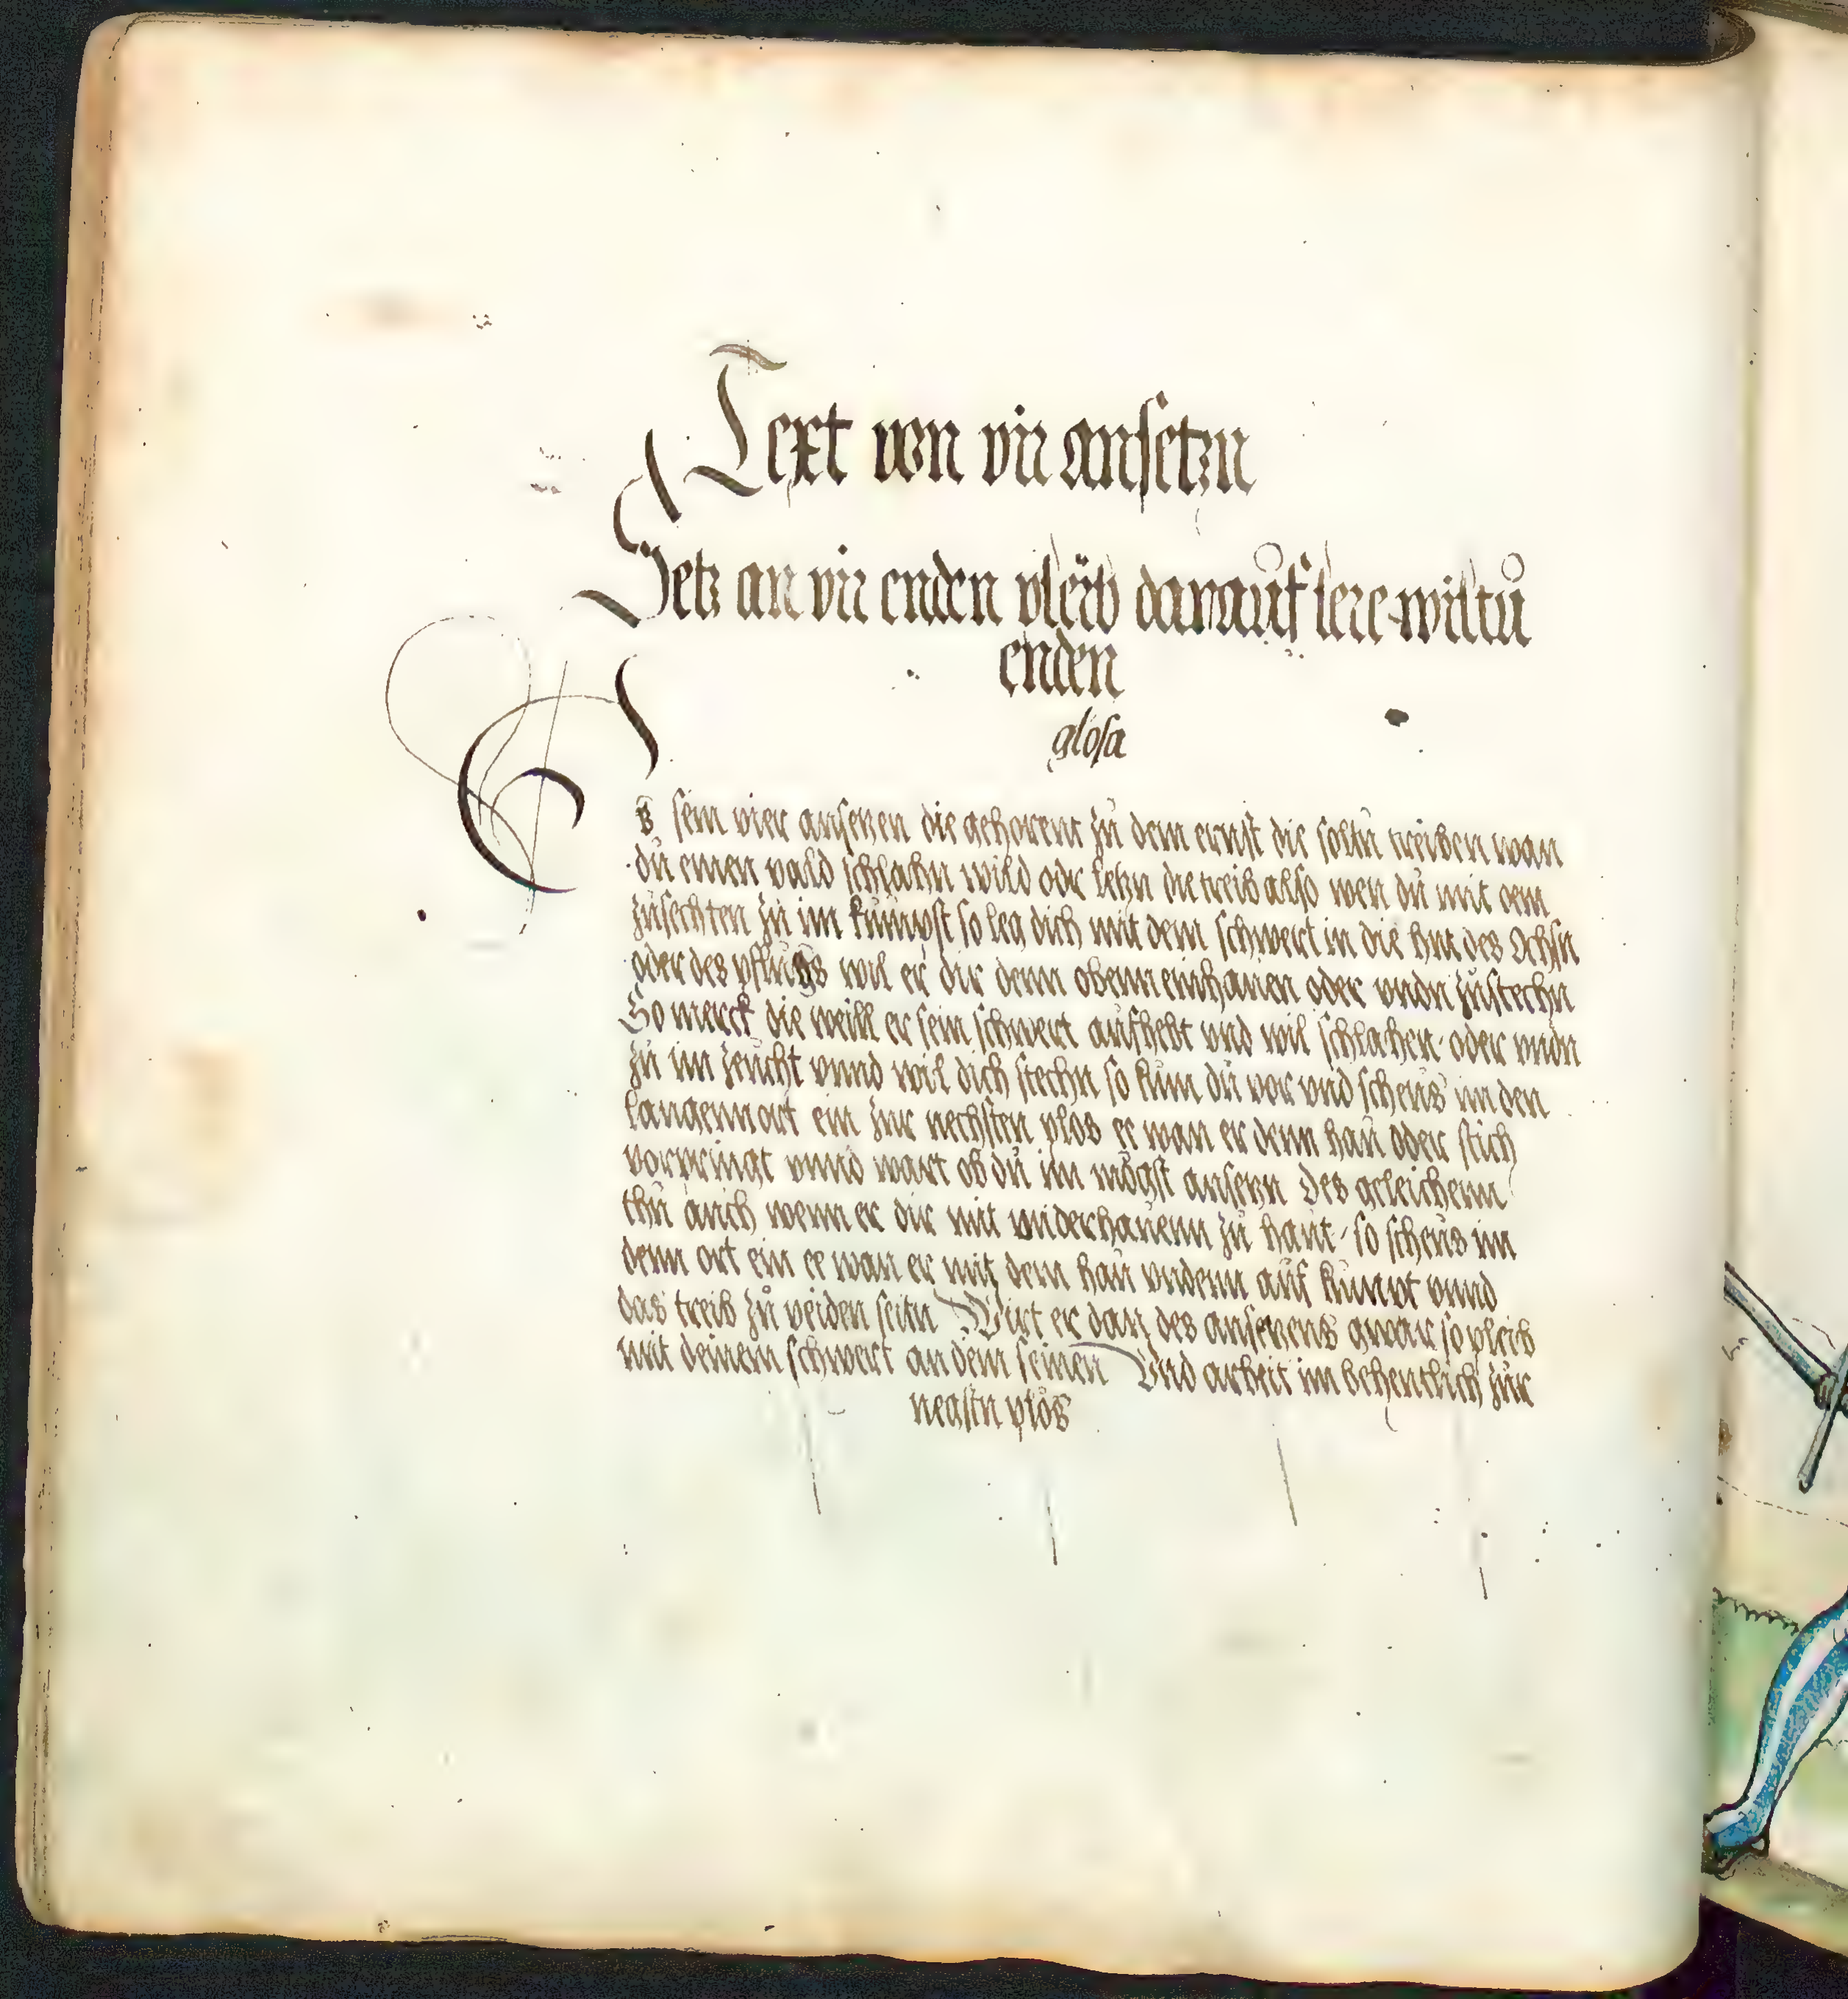 Text von vir ansetzn
Setz an vir enden pleib darauf lere wiltu
enden
glosa
Es sein vier ansetzen die gehorent zu dem ernst die soltu treiben wan
du einen pald schlahn wild odr letzn die treib also wen du mit dem
zufechten zu im kumpst so leg dich mit dem schwert in die hut des Ochsn
oder des pflugs wil er dir denn obenn einhauen oder undn zustechn
So merck die weill er sein schwert aufhebt und wil schlahen oder undn
zu im zeucht unnd wil dich stechn so kum du vor und scheus im den
langenn ort ein zur nechsten plos ee wan er denn hau oder stich
vorpringt unnd wart ob du im mögst ansetzn Des geleichenn
thu auch wenn er dir mit underhauenn zu haut so scheus im
denn ort ein ee wan er mit dem hau undenn auf kumpt unnd
das treib zu peiden seitn Wirt er dan des ansetzens gwar so pleib
mit deinem schwert an dem seinen Und arbeit im behentlich zur
negstn plös